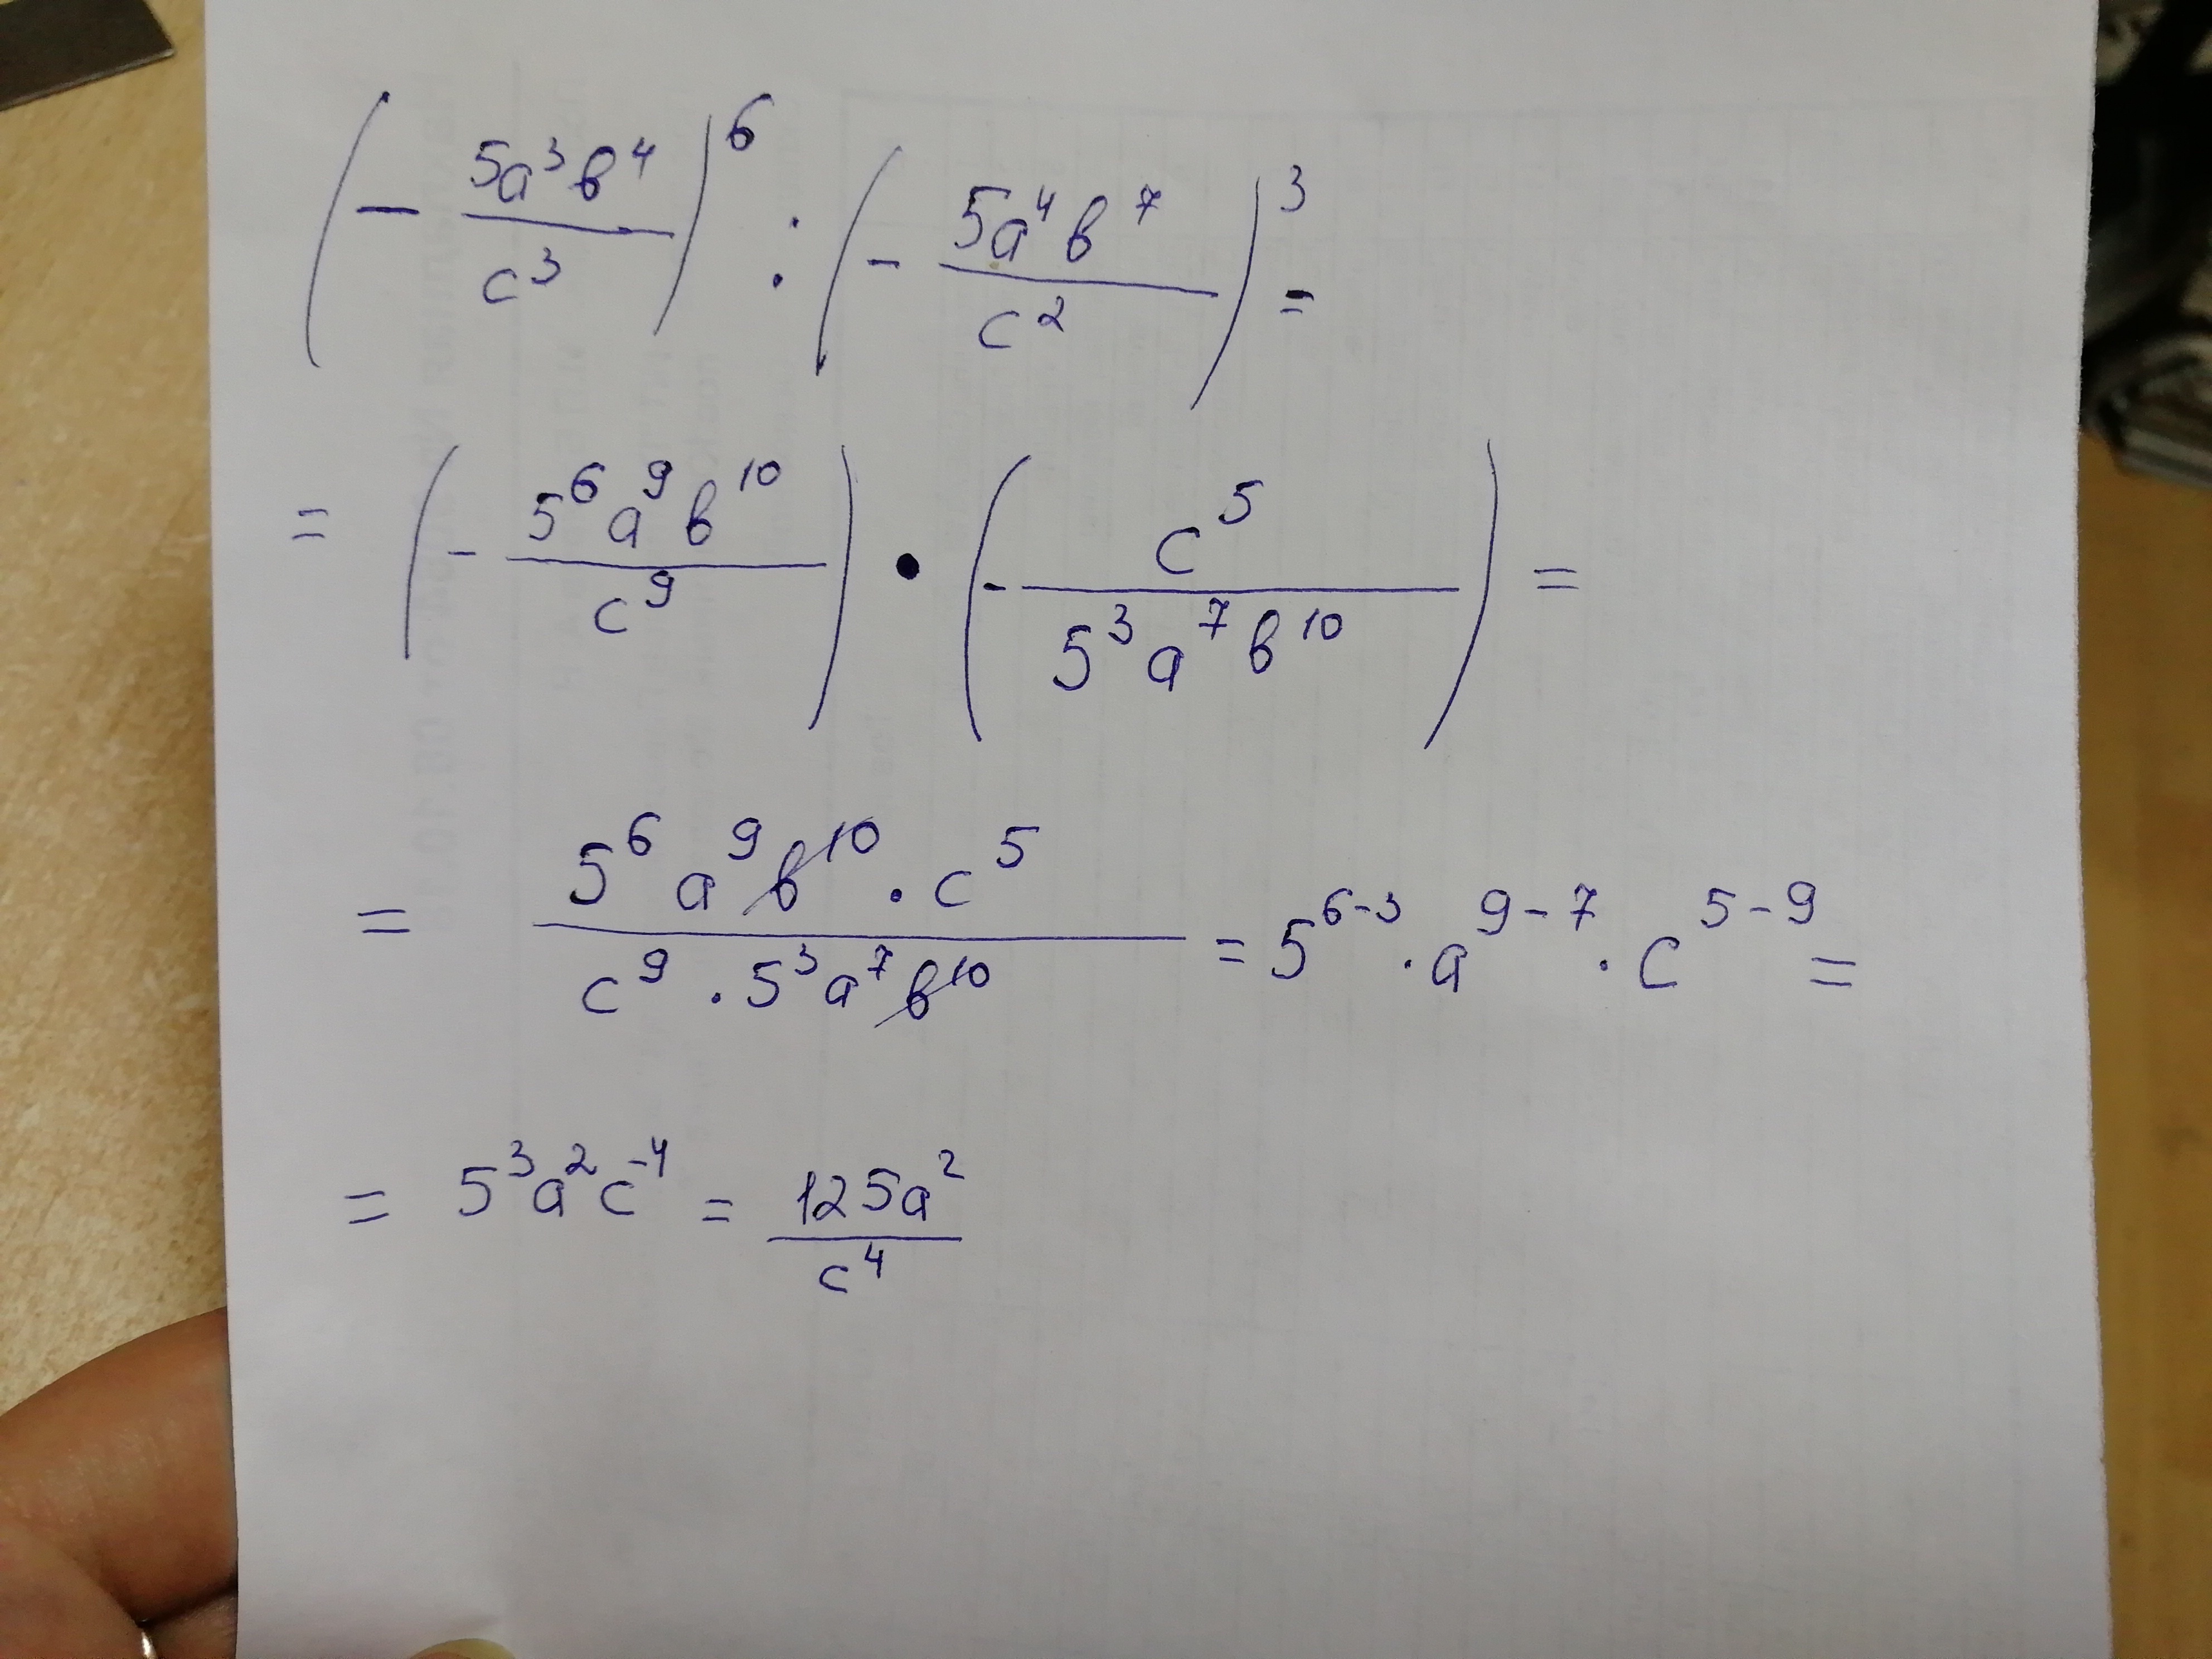 (- 5a³b⁴ / c³)⁶ : (- 5a⁴b⁷ / c²)³ =
= (- 5⁶a⁹b¹⁰ / c⁹) • (- c⁵ / 5³a⁷b¹⁰) =
= 5⁶a⁹b¹⁰ · c⁵ / c⁹ · 5³a⁷b¹⁰ = 5⁶⁻³ · a⁹⁻⁷ · c⁵⁻⁹ =
= 5³a²c⁻⁴ = 125a² / c⁴